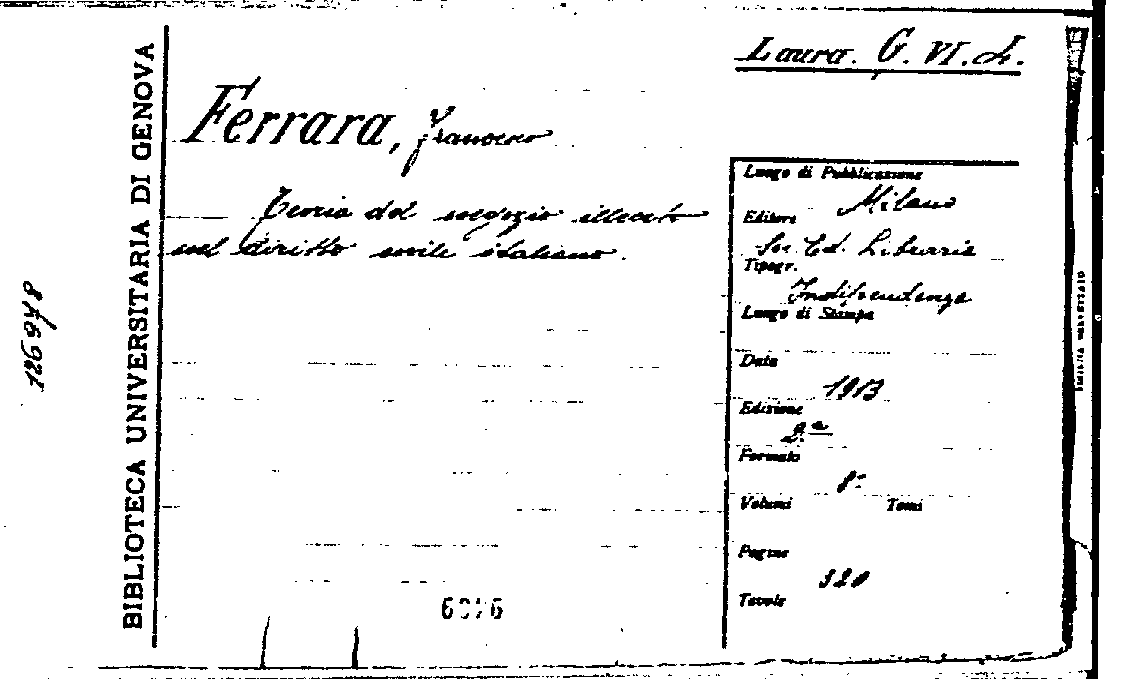 Laura. G. VI. L.
Ferrara, Francesco
Teoria del negozio illecito
nel diritto civile italiano.
BIBLIOTECA UNIVERSITARIA DI GENOVA
Luogo di Pubblicazione
Milano
Editore
Soc. Ed. Libraria
Tipogr.
Indipendenza
Luogo di Stampa
Data
1913
Edizione
2ª
Formato
8°
Volumi Tomi
Pagine
320
Tavole